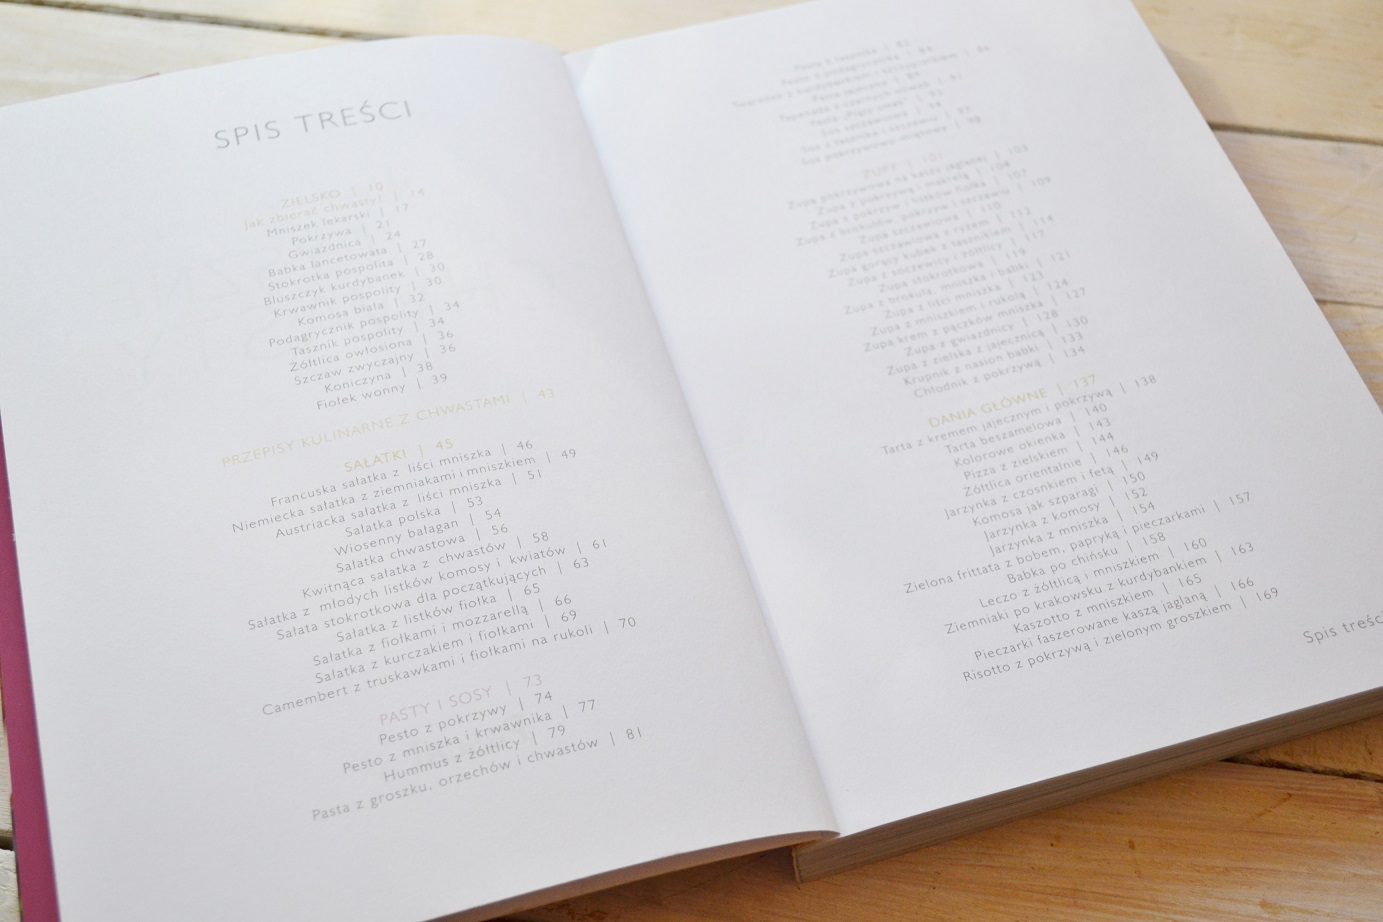 SPIS TREŚCI
ZIELSKO | 10
Jak zbierać chwasty? | 14
Mniszek lekarski | 17
Pokrzywa | 21
Gwiazdnica | 24
Babka lancetowata | 27
Stokrotka pospolita | 28
Bluszczyk kurdybanek | 30
Krwawnik pospolity | 30
Komosa biała | 32
Podagrycznik pospolity | 34
Tasznik pospolity | 34
Żółtlica owłosiona | 36
Szczaw zwyczajny | 36
Koniczyna | 38
Fiołek wonny | 39
PRZEPISY KULINARNE Z CHWASTAMI | 43
SAŁATKI | 45
Francuska sałatka z liści mniszka | 46
Niemiecka sałatka z ziemniakami i mniszkiem | 49
Austriacka sałatka z liści mniszka | 51
Sałatka polska | 53
Wiosenny bałagan | 54
Sałatka chwastowa | 56
Kwitnąca sałatka z chwastów | 58
Sałatka z młodych listków komosy i kwiatów | 61
Sałata stokrotkowa dla początkujących | 63
Sałatka z listków fiołka | 65
Sałatka z fiołkami i mozzarellą | 66
Sałatka z kurczakiem i fiołkami | 69
Camembert z truskawkami i fiołkami na rukoli | 70
PASTY I SOSY | 73
Pesto z pokrzywy | 74
Pesto z mniszka i krwawnika | 77
Hummus z żółtlicy | 79
Pasta z groszku, orzechów i chwastów | 81
ZUPY | 101
Zupa pokrzywowa na kaszy jaglanej | 103
Zupa z pokrzywą i makrelą | 104
Zupa z pokrzyw i listków fiołka | 107
Zupa z brokułów, pokrzyw i szczawiu | 109
Zupa szczawiowa | 110
Zupa szczawiowa z ryżem | 112
Zupa gorący kubek z tasznikiem | 114
Zupa z soczewicy i żółtlicy | 117
Zupa stokrotkowa | 119
Zupa z brokuła, mniszka i babki | 121
Zupa z liści mniszka | 123
Zupa z mniszkiem i rukolą | 124
Zupa krem z pączków mniszka | 127
Zupa z gwiazdnicy | 128
Zupa z zielska z jajecznicą | 130
Krupnik z nasion babki | 133
Chłodnik z pokrzywą | 134
DANIA GŁÓWNE | 137
Tarta z kremem jajecznym i pokrzywą | 138
Tarta beszamelowa | 140
Kolorowe okienka | 143
Pizza z zielskiem | 144
Żółtlica orientalnie | 146
Jarzynka z czosnkiem i fetą | 149
Komosa jak szparagi | 150
Jarzynka z komosy | 152
Jarzynka z mniszka | 154
Zielona frittata z bobem, papryką i pieczarkami | 157
Babka po chińsku | 158
Leczo z żółtlicą i mniszkiem | 160
Ziemniaki po krakowsku z kurdybankiem | 163
Kaszotto z mniszkiem | 165
Pieczarki faszerowane kaszą jaglaną | 166
Risotto z pokrzywą i zielonym groszkiem | 169
Spis treści